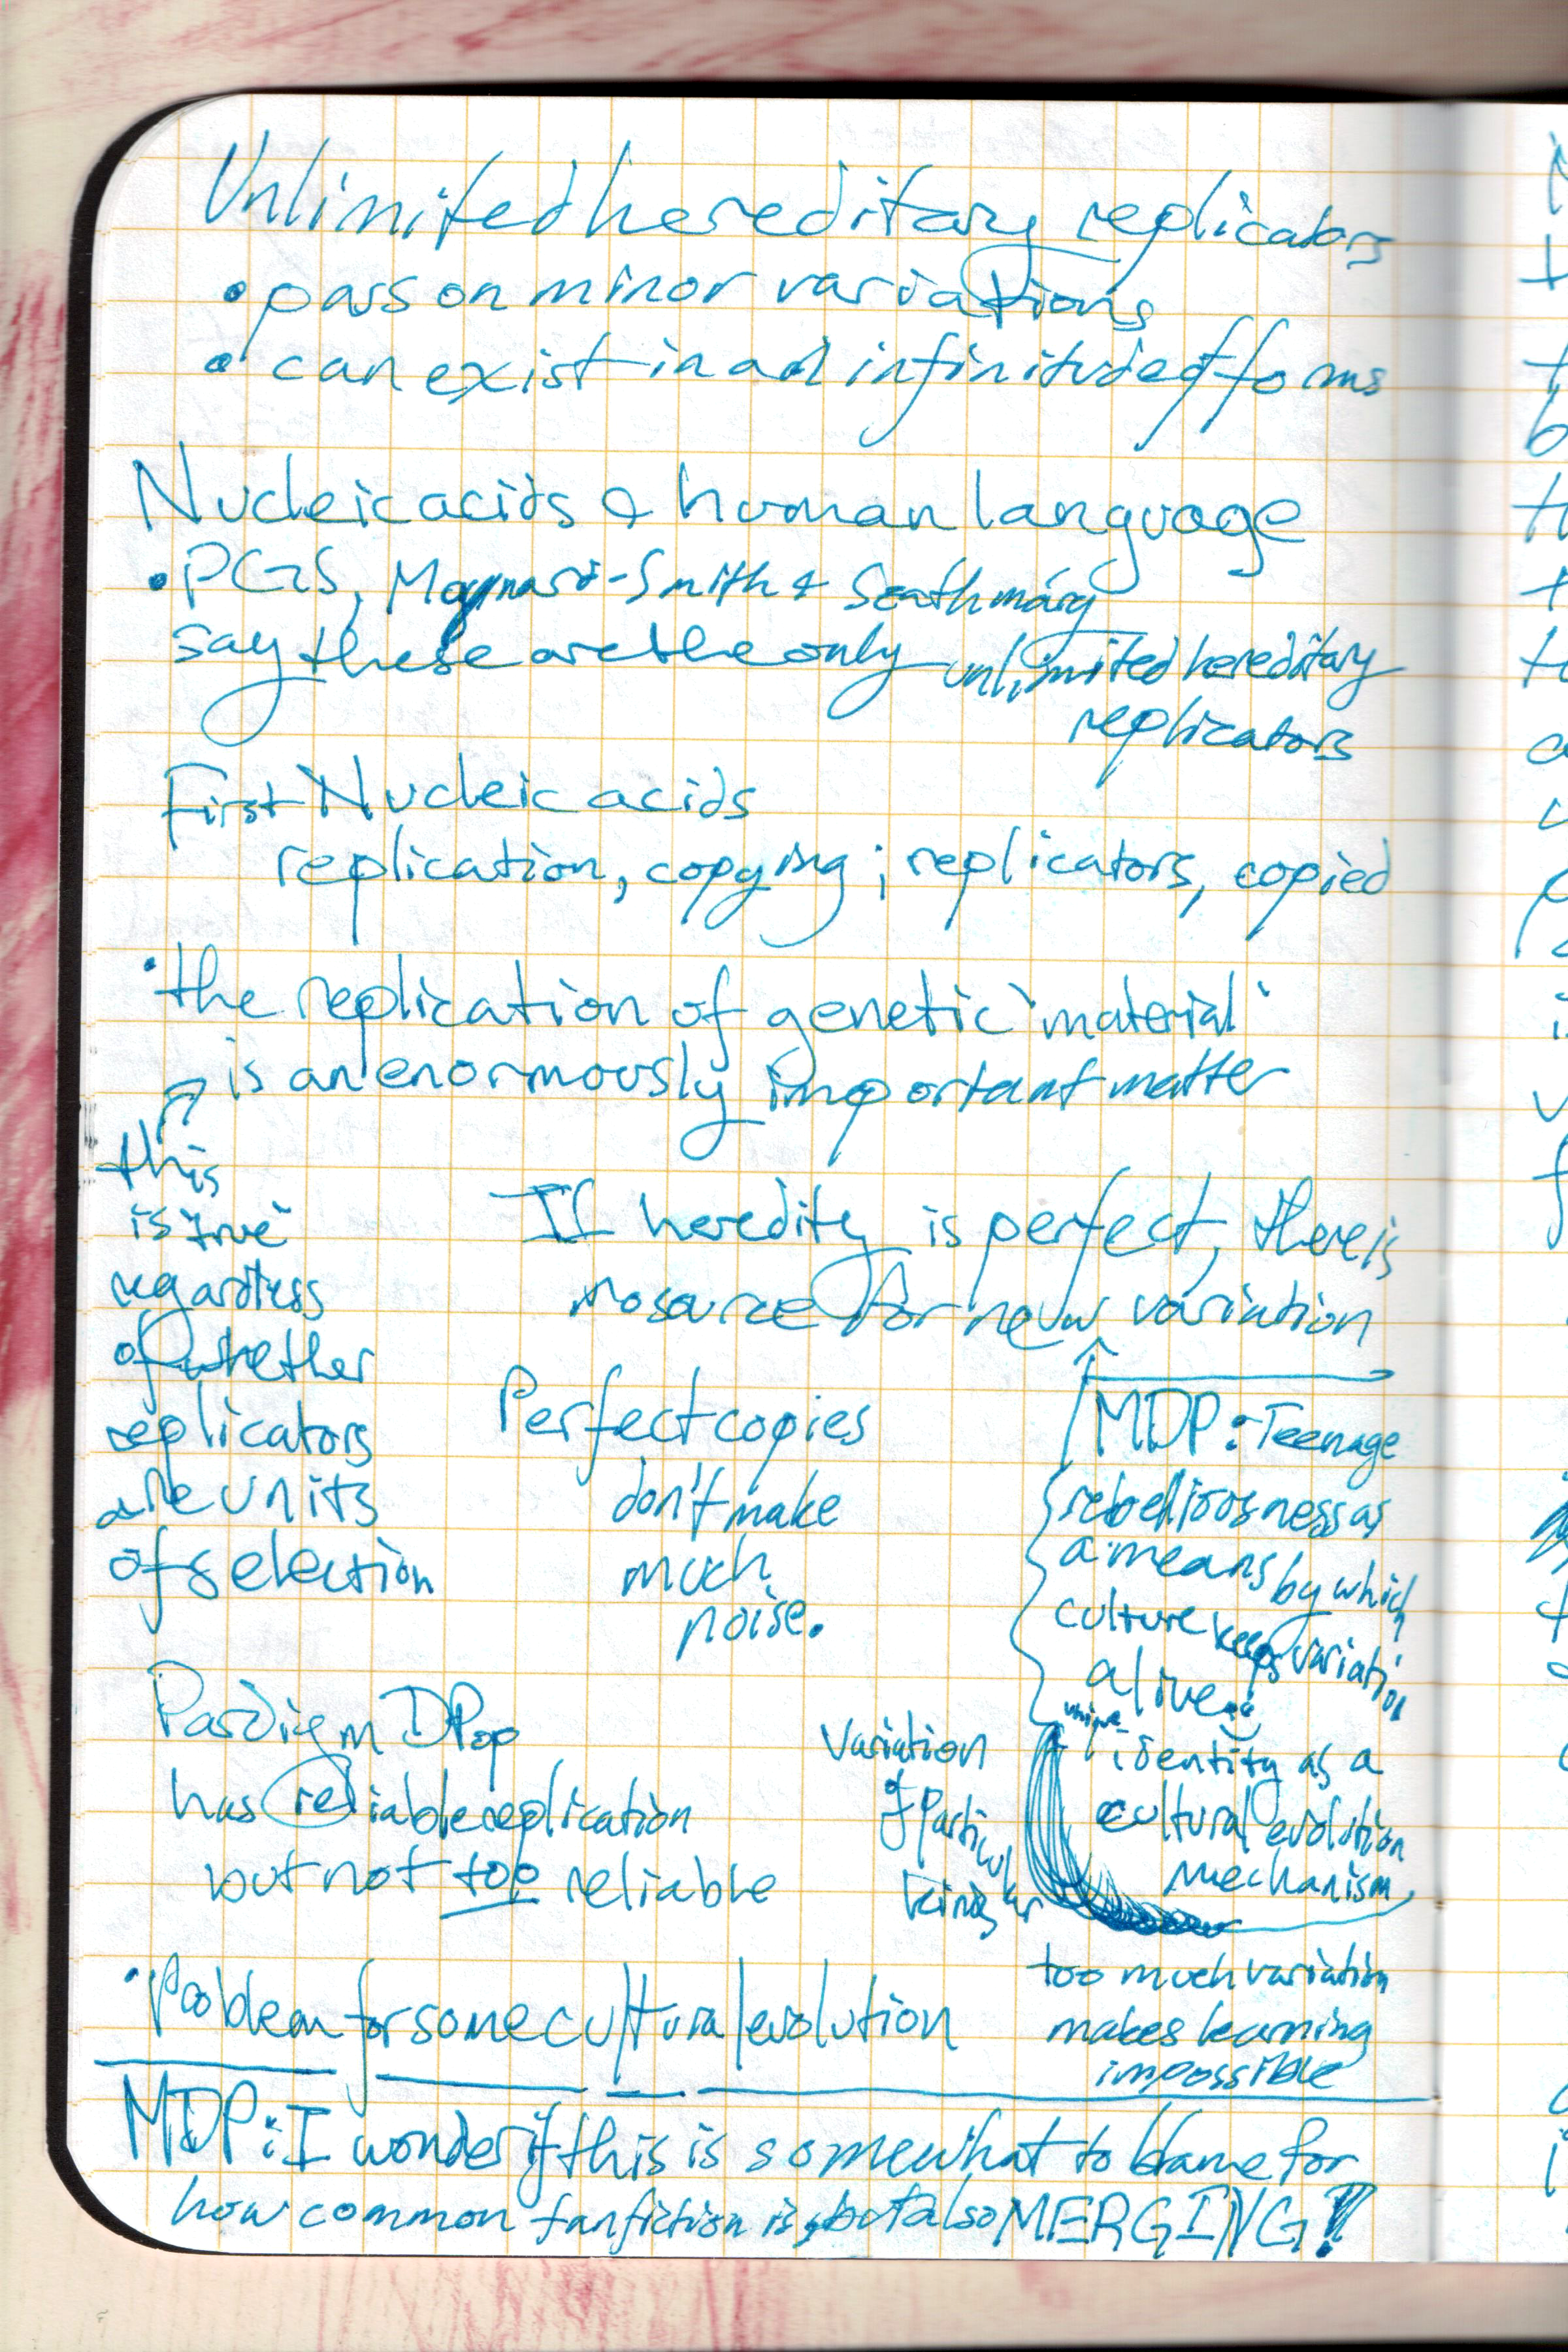 Unlimited hereditary replicators
• pass on minor variations
• can exist in an infinitude of forms
Nucleic acids & human language
• PGS, Maynard-Smith & Szathmáry
say these are the only unlimited hereditary
replicators
First Nucleic acids
replication, copying; replicators, copied
• the replication of genetic "material"
is an enormously important matter
this
is "true"
regardless
of whether
replicators
are units
of selection
If heredity is perfect, there is
no source for new variation
Perfect copies
don't make
much
noise.
MDP: Teenage
rebelliousness as
a means by which
culture keeps variation
alive
unique
identity as a
cultural evolution
mechanism
Variation
of particular
kinds
too much variation
makes learning
impossible
Pardigm DPop
has reliable replication
but not too reliable
• Problem for some cultural evolution
MDP: I wonder if this is somewhat to blame for
how common fanfiction is, but also MERGING!